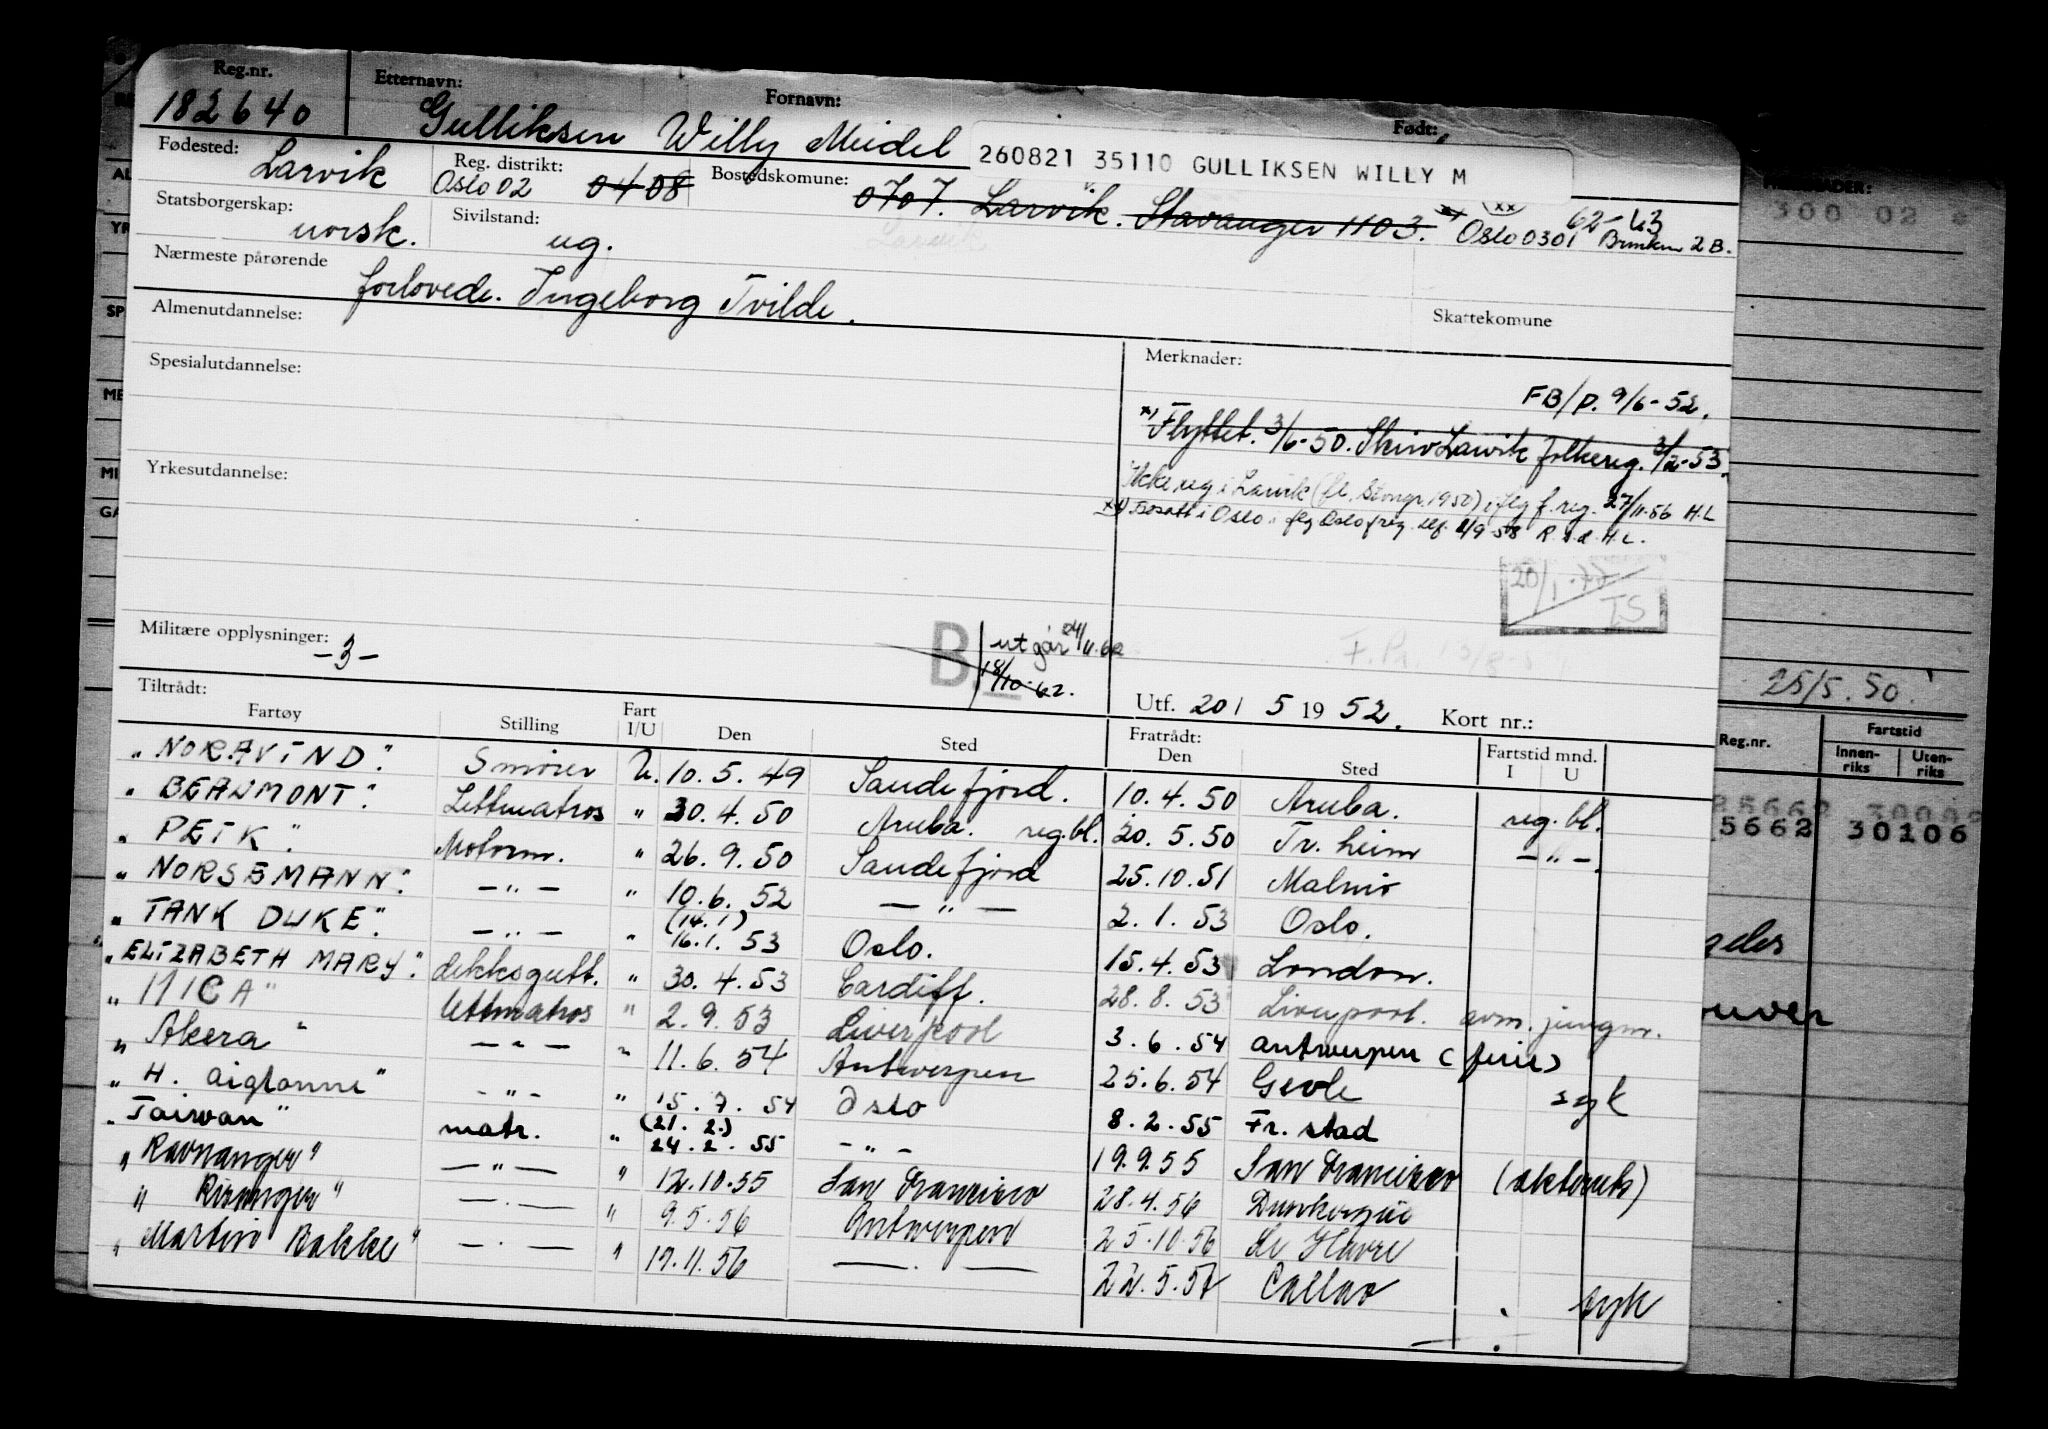 Reg.nr. Etternavn: Fornavn: Født:
182640 Gulliksen Willy Meidel 260821 35110 GULLIKSEN WILLY M
Fødested: Larvik Reg. distrikt: Oslo 02 0408 Bostedskomune: 0707. Larvik. Stavanger 1103. Oslo 0301 62-63
Statsborgerskap: norsk. Sivilstand: ug.
Nærmeste pårørende forlovede. Ingeborg Tvilde.
Almenutdannelse: Skattekomune
Spesialutdannelse: Merknader:
FB/P. 9/6-52.
x) Flyttet. 3/6-50. Skriv Larvik folkereg. 3/2-53.
Yrkesutdannelse:
Ikke reg i Larvik 1950), flg f.reg. 27/11.56 H.L
xx) Bosatt i Oslo, flg Oslo f.reg. H.L.
20/1-77
IS
Militære opplysninger: -3- B utgår 24/11.62
18/10-62.
25/5.50.
Tiltrådt: Utf. 20/5 1952. Kort nr.:
Fartøy Stilling Fart I/U Den Sted Fratrådt: Den Sted Fartstid mnd. I U
Reg.nr. Fartstid Innen-riks Uten-riks
"NORAVIND". Smører U. 10.5.49 Sandefjord. 10.4.50 Aruba. reg.bl.
"BEAUMONT". Lettmatros " 30.4.50 Aruba. reg.bl. 20.5.50 Tr.heim -"-
5662 30106
"PEIK". Motorm. " 26.9.50 Sandefjord 25.10.51 Malmø
"NORSEMANN". -"- " 10.6.52 -"- 2.1.53 Oslo.
"TANK DUKE". -"- " (14.1) 16.1.53 Oslo. 15.4.53 London.
"ELIZABETH MARY". dekksgutt. " 30.4.53 Cardiff. 28.8.53 Liverpool. avm. jungm.
"NICA" lettmatros " 2.9.53 Liverpool 3.6.54 Antwerpen (ferie)
"Akera" -"- " 11.6.54 Antwerpen 25.6.54 Gevle syk
"H. " -"- " 15.7.54 Oslo 8.2.55 Fr.stad
"Taiwan" matr. " (21.2.) 24.2.55 -"- 19.9.55 San Francisco (akteruts)
"Ravnanger" -"- " 12.10.55 San Francisco 28.4.56 Dunkerque
" " -"- " 9.5.56 Antwerpen 25.10.56 Le Havre
"Martin Bakke" -"- " 17.11.56 -"- 22.5.57 Callao syk